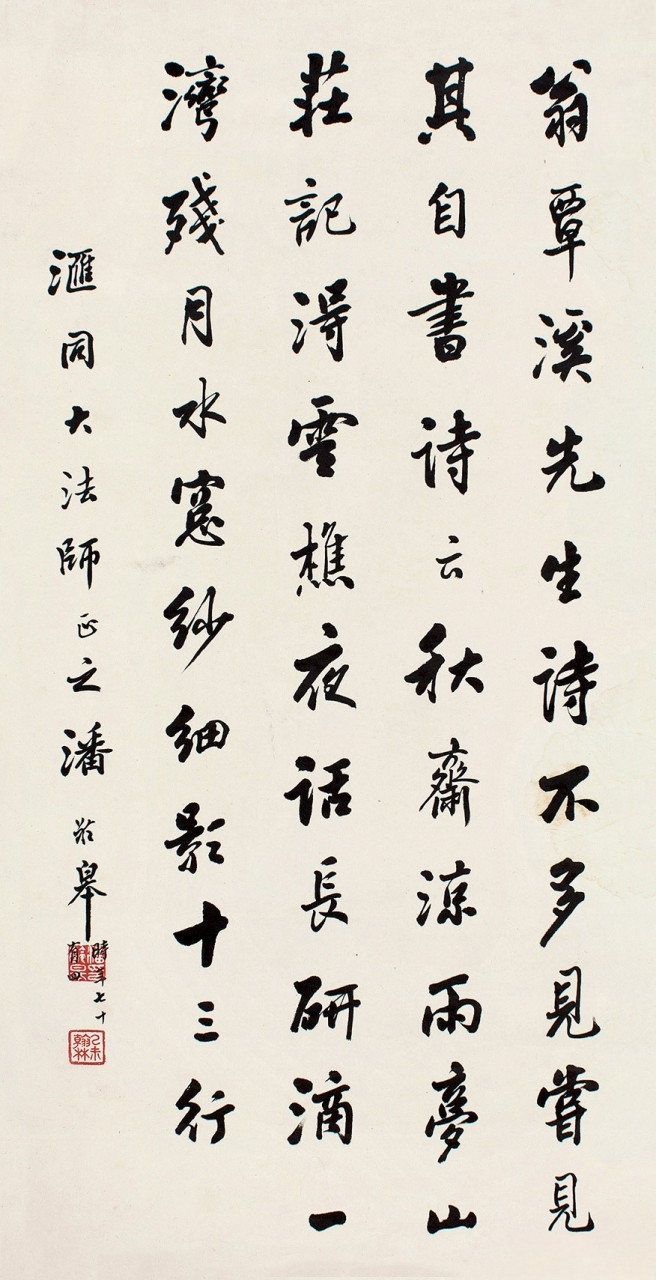 翁覃溪先生詩不多見嘗見
其自書詩云秋齋涼雨夢山
莊記得雪樵夜話長研滴一
灣殘月水窓紗細影十三行
滙同大法師正之潘齡皋
時年七十有四
乙未翰林